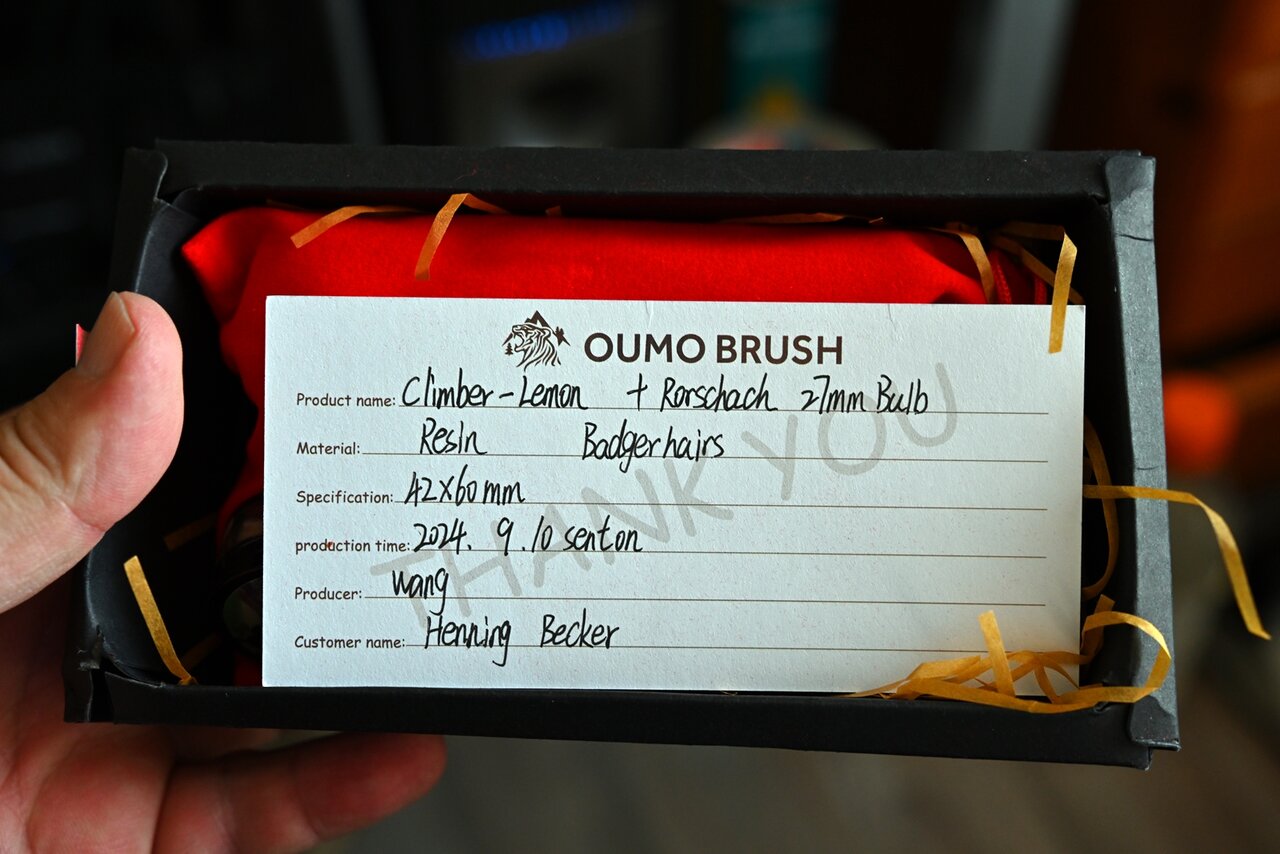 OUMO BRUSH
Product name: Climber-Lemon + Rorschach 27mm Bulb
Material: Resin Badger hairs
Specification: 42x60mm
production time: 2024. 9. 10 senton
Producer: Wang
Customer name: Henning Becker
THANK YOU